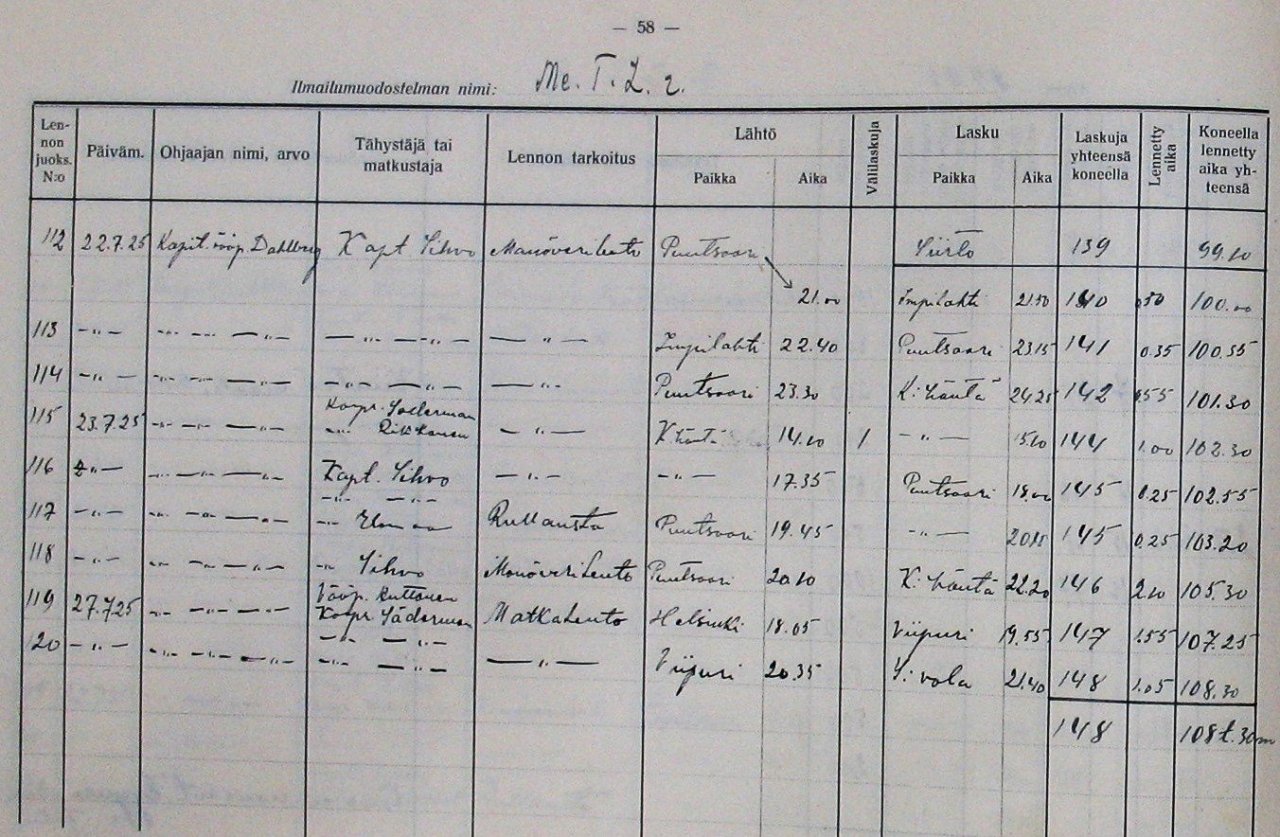 — 58 —
Ilmailumuodostelman nimi: Me. T. L. 2.
Len-non juoks. N:o Päiväm. Ohjaajan nimi, arvo Tähystäjä tai matkustaja Lennon tarkoitus Lähtö Paikka Aika Välilaskuja Lasku Paikka Aika Laskuja yhteensä koneella Lennetty aika Koneella lennetty aika yh-teensä
112 22.7.25 Kapit. vääp. Dahlberg Kapt. Sihvo Manöverilento Puutsaari Siirto 139 99.10
21.00 Impilahti 21.50 140 0.50 100.00
113 —"— —"— —"— —"— —"— —"— Impilahti 22.40 Puutsaari 23.15 141 0.35 100.35
114 —"— —"— —"— —"— —"— —"— Puutsaari 23.30 K: häntä 24.25 142 0.55 101.30
Korpr. Söderman
115 23.7.25 —"— —"— —"— —"— K: häntä 14.10 1 —"— 15.10 144 1.00 102.30
116 —"— —"— —"— Kapt. Sihvo —"— —"— 17.35 Puutsaari 18.00 145 0.25 102.55
—"— —"—
117 —"— —"— —"— —"— Puutsaari 19.45 —"— 20.15 145 0.25 103.20
118 —"— —"— —"— —"— Sihvo Manöverilento Puutsaari 20.10 K: häntä 22.20 146 2.10 105.30
Vääp. Ruttonen
119 27.7.25 —"— —"— Korpr. Söderman Matkalento Helsinki 18.05 Viipuri 19.55 147 1.55 107.25
—"— —"—
120 —"— —"— —"— —"— —"— —"— Viipuri 20.35 21.40 148 1.05 108.30
148 108t. 30m